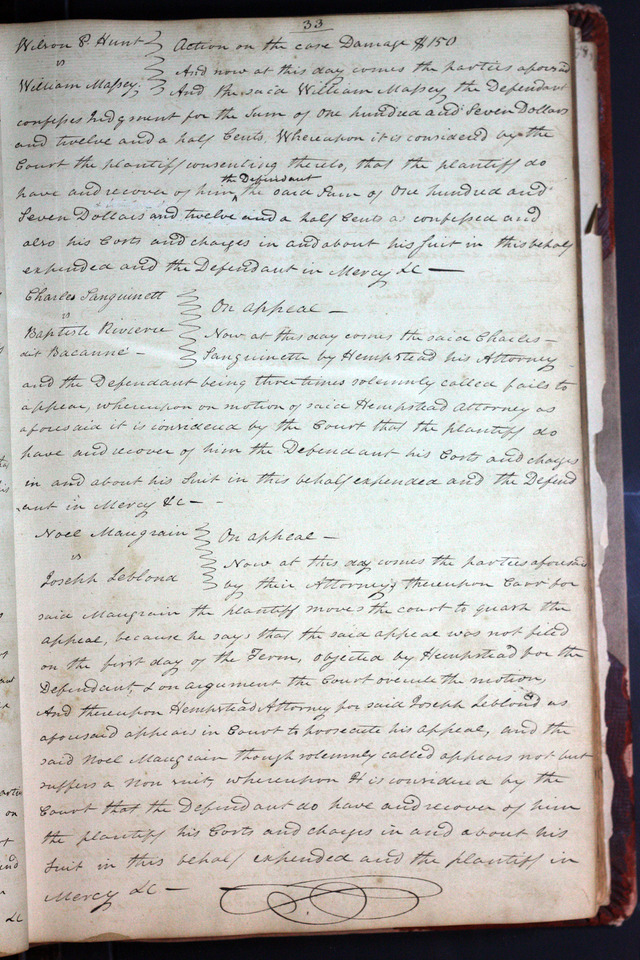 33
Wilson P Hunt
vs
William Massey
Action on the case Damage $150
And now at this day comes the parties aforesaid
And the said William Massey the Defendant
confesses Judgment for the Sum of One hundred and Seven Dollars
and twelve and a half Cents. Whereupon it is considered by the
Court the plaintiff consenting thereto, that the plaintiff do
have and recover of him the Defendant the said Sum of One hundred and
Seven Dollars and twelve and a half Cents as confessed and
also his Costs and charges in and about his Suit in this behalf
expended and the Defendant in Mercy &c —
Charles Sanguinett
vs
Baptiste Riviere
dit Bacanné —
On appeal —
Now at this day comes the said Charles
Sanguinette by Hempstead his Attorney
and the Defendant being three times solemnly called fails to
appear, whereupon on motion of said Hempstead Attorney as
aforesaid it is considered by the Court that the plaintiff do
have and recover of him the Defendant his Costs and charges
in and about his Suit in this behalf expended and the Defend
ant in Mercy &c —
Noel Maugrain
vs
Joseph Leblond
On appeal —
Now at this day comes the parties aforesaid
by their Attorneys thereupon Carr for
said Maugrain the plaintiff moves the court to quash the
appeal, because he says that the said appeal was not filed
on the first day of the Term, objected by Hempstead for the
Defendant, & on argument the Court overule the motion,
And thereupon Hempstead Attorney for said Joseph Leblond as
aforesaid appears in Court to prosecute his appeal, and the
said Noel Maugrain though solemnly called appears not but
suffers a Non suit, whereupon It is considered by the
Court that the Defendant do have and recover of him
the plaintiff his Costs and charges in and about his
Suit in this behalf expended and the plaintiff in
Mercy &c —